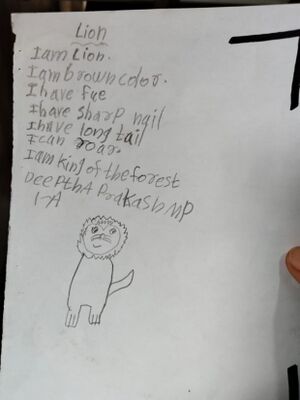 Lion
I am Lion.
I am brown color.
I have fue
I have sharp nail
I have long tail
I can roar.
I am king of the forest
Deeptha Prakash MP
1-A